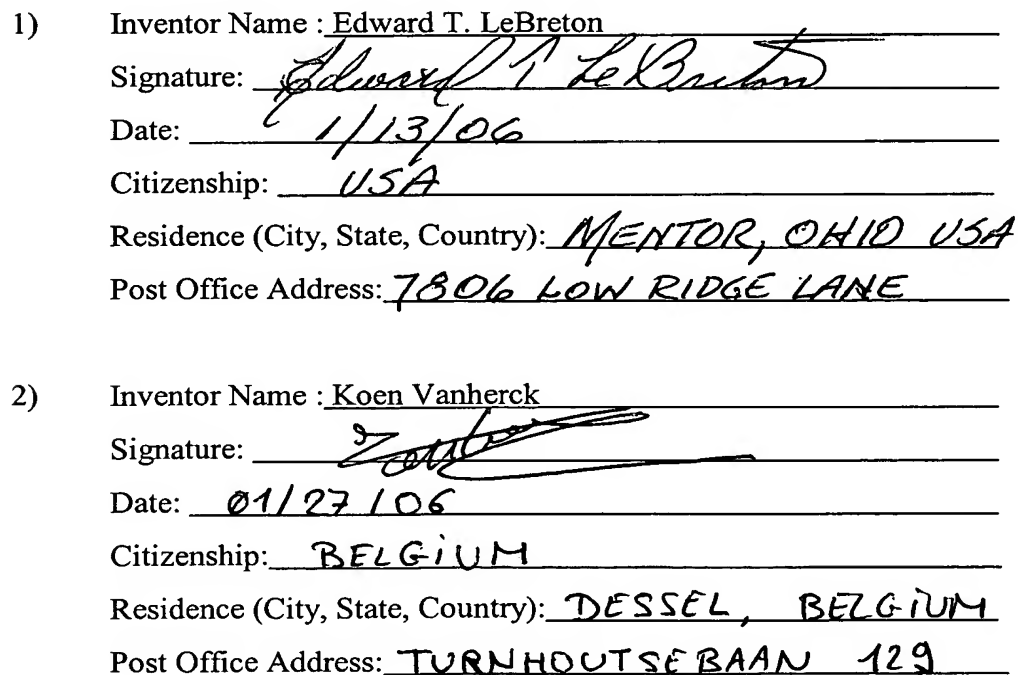 1) Inventor Name : Edward T. LeBreton
Signature: Edward T LeBreton
Date: 1/13/06
Citizenship: USA
Residence (City, State, Country): MENTOR, OHIO USA
Post Office Address: 7806 LOW RIDGE LANE
2) Inventor Name : Koen Vanherck
Signature:
Date: 01/27/06
Citizenship: BELGiUM
Residence (City, State, Country): DESSEL, BELGiUM
Post Office Address: TURNHOUTSEBAAN 129